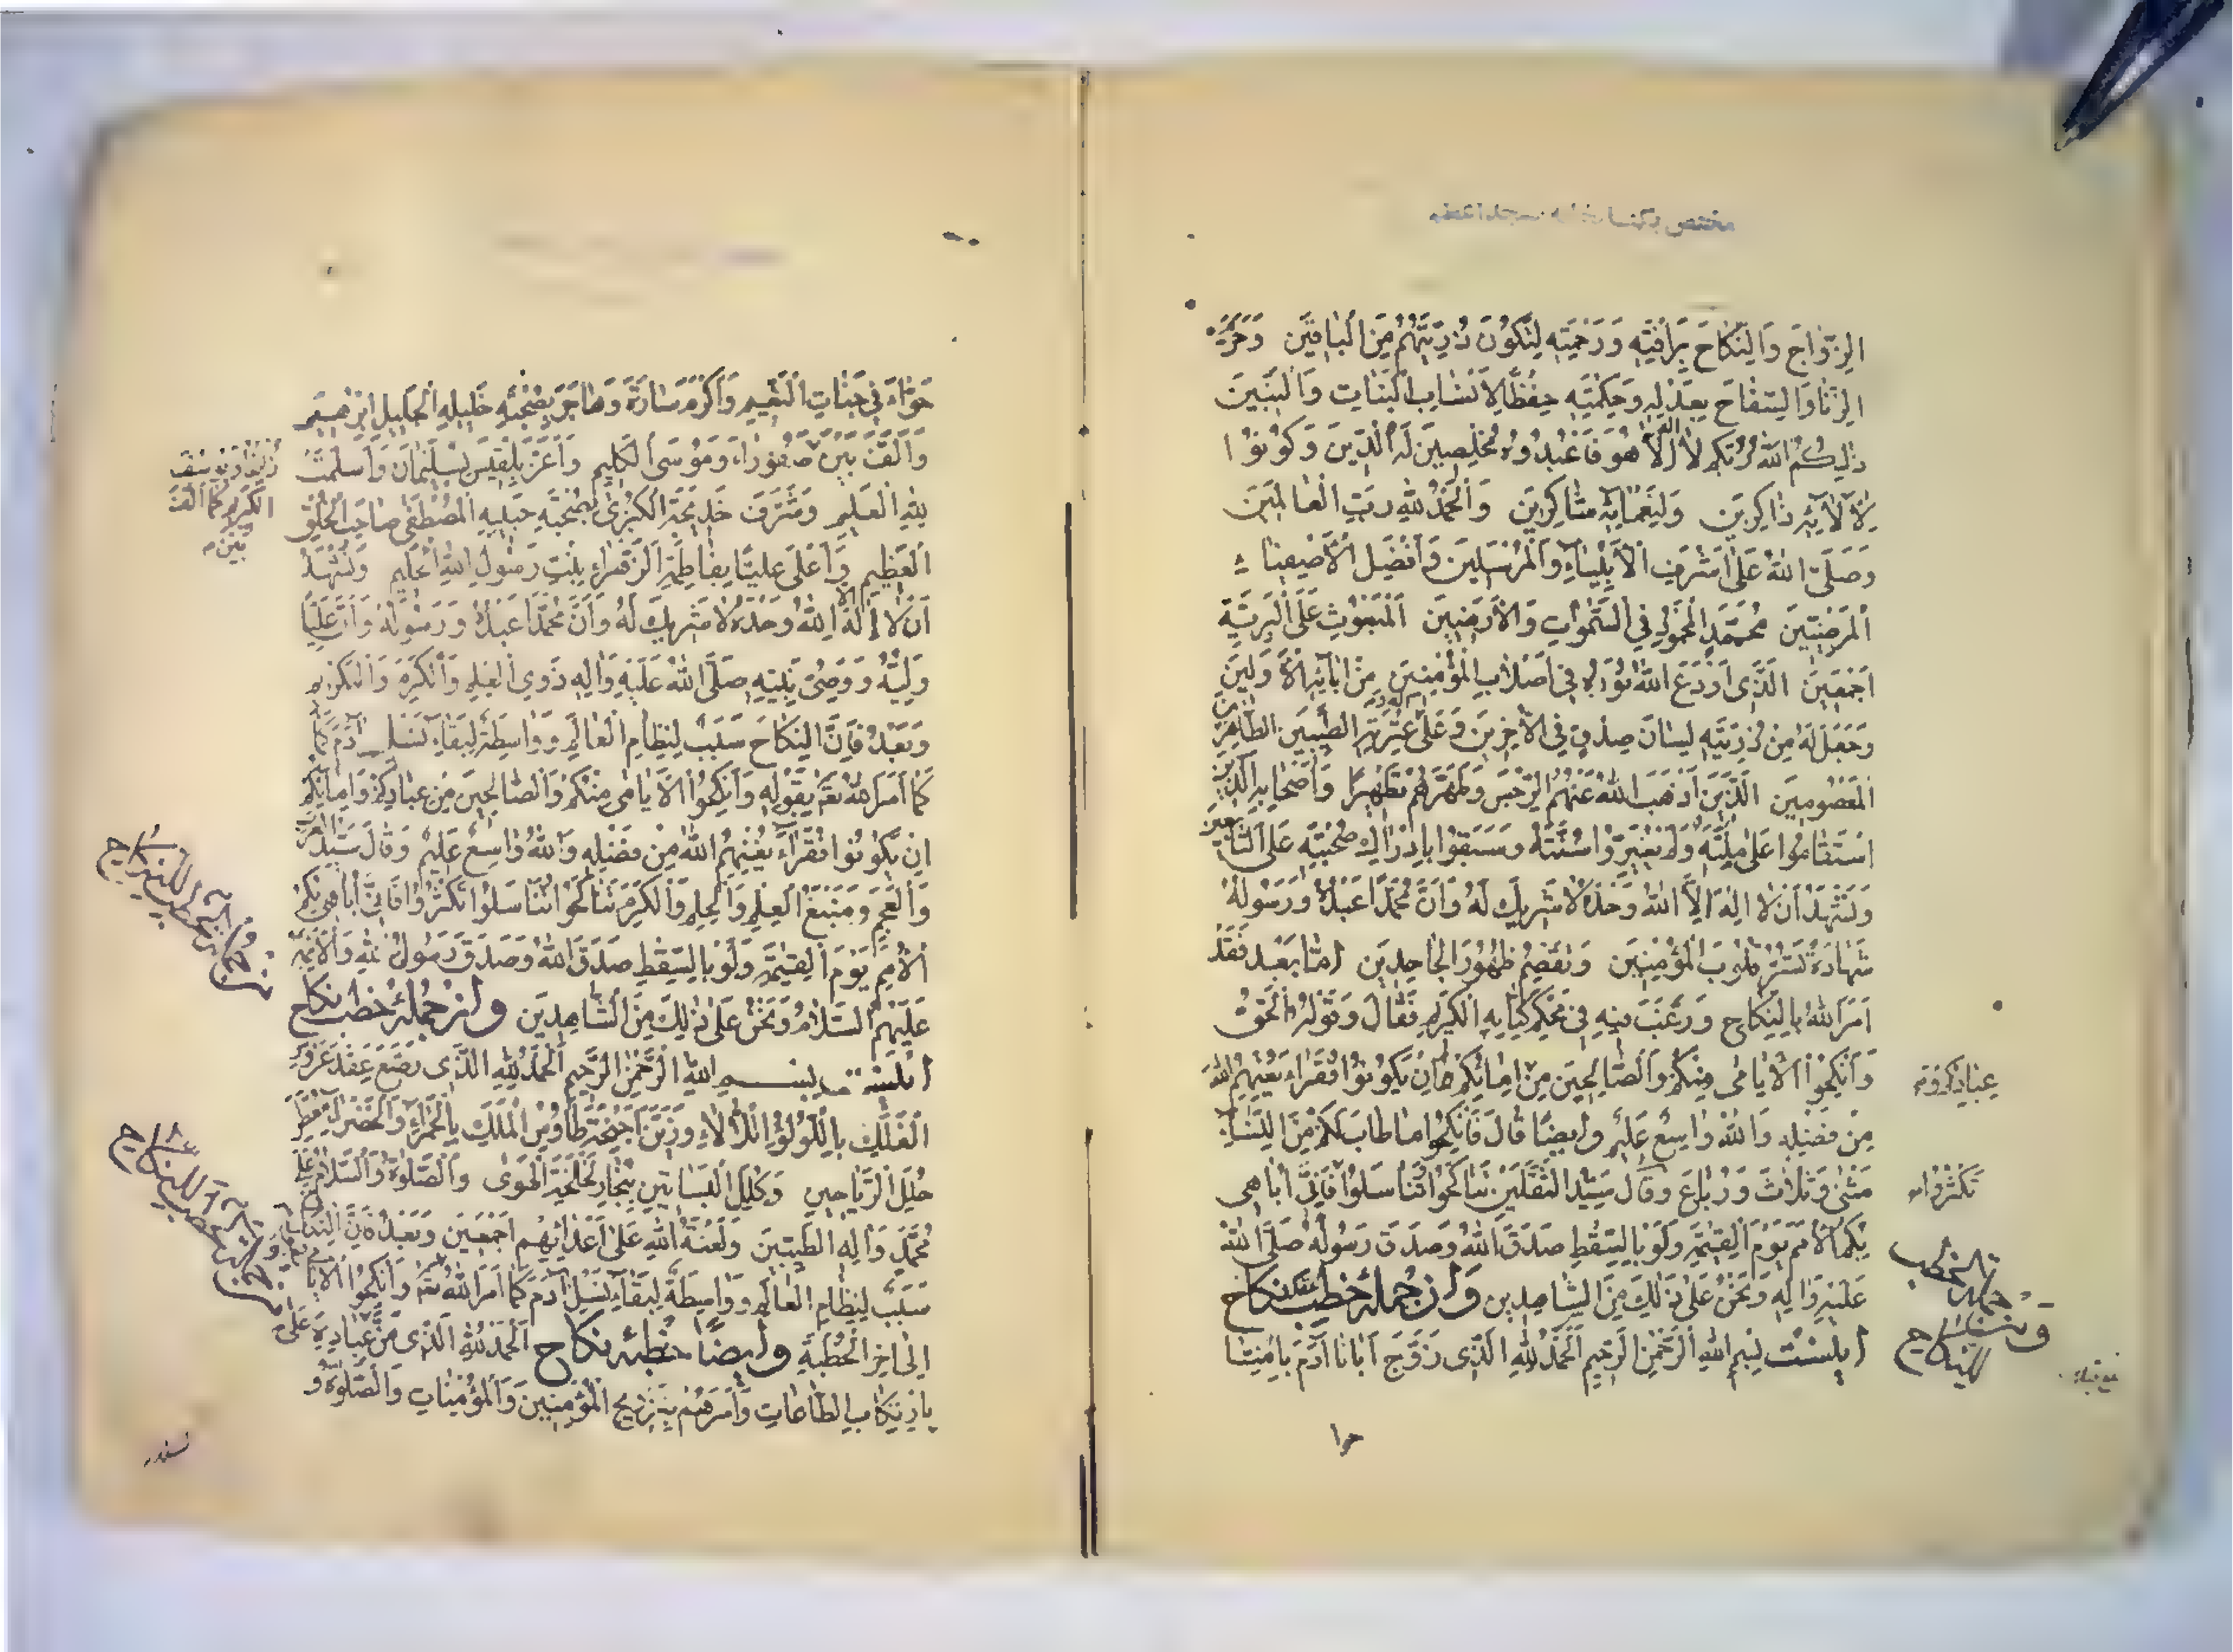 الزِّوٰاجَ وَالنِّكٰاحَ بِرَأْفَتِهِ وَرَحْمَتِهِ لِتَكُونَ ذُرِّيَّتُهُمْ مِنَ الْبٰاقِينَ وَحَرَّمَ
الزِّنٰا وَالسِّفٰاحَ بِعَدْلِهِ وَحِكْمَتِهِ حِفْظًا لِأَنْسٰابِ الْبَنٰاتِ وَالْبَنِينَ
ذٰلِكُمُ اللهُ رَبُّكُمْ لا إله إِلّا هُوَ فَاعْبُدُوهُ مُخْلِصِينَ لَهُ الدِّينَ وَكُونُوا
لِآلٰائِهِ ذٰاكِرِينَ وَلِنَعْمٰائِهِ شٰاكِرِينَ وَالْحَمْدُ لِلّٰهِ رَبِّ الْعٰالَمِينَ
وَصَلَّى اللهُ عَلىٰ أَشْرَفِ الْأَنْبِيٰاءِ وَالْمُرْسَلِينَ وَأَفْضَلِ الْأَصْفِيٰاءِ
الْمَرْضِيِّينَ مُحَمَّدٍ الْمَحْمُودِ فِي السَّمٰوٰاتِ وَالْأَرَضِينَ الْمَبْعُوثِ عَلَى الْبَرِيَّةِ
أَجْمَعِينَ الَّذِي أَوْدَعَ اللهُ نُورَهُ فِي أَصْلٰابِ الْمُؤْمِنِينَ مِنْ اٰبٰائِهِ الْأَوَّلِينَ
وَجَعَلَ لَهُ مِنْ ذُرِّيَّتِهِ لِسٰانَ صِدْقٍ فِي الْآخِرِينَ وَعَلىٰ عِتْرَتِهِ الطَّيِّبِينَ الطّٰاهِرِينَ
الْمَعْصُومِينَ الَّذِينَ أَذْهَبَ اللهُ عَنْهُمُ الرِّجْسَ وَطَهَّرَهُمْ تَطْهِيرًا وَأَصْحٰابِهِ الَّذِينَ
اسْتَقٰامُوا عَلىٰ مِلَّتِهِ وَلَمْ يُغَيِّرُوا سُنَّتَهُ وَسَبَقُوا بِإِدْرٰاكِ صُحْبَتِهِ عَلَى التّٰابِعِينَ
وَنَشْهَدُ أَنْ لٰا إِلٰهَ إِلَّا اللهُ وَحْدَهُ لٰا شَرِيكَ لَهُ وَأَنَّ مُحَمَّدًا عَبْدُهُ وَرَسُولُهُ
شَهٰادَةً تَسُرُّ قُلُوبَ الْمُؤْمِنِينَ وَتَقْصِمُ ظُهُورَ الْجٰاحِدِينَ أَمّٰا بَعْدُ فَقَدْ
أَمَرَ اللهُ بِالنِّكٰاحِ وَرَغَّبَ فِيهِ فِي مُحْكَمِ كِتٰابِهِ الْكَرِيمِ فَقٰالَ وَقَوْلُهُ الْحَقُّ
وَأَنْكِحُوا الْأَيٰامىٰ مِنْكُمْ وَالصّٰالِحِينَ مِنْ إِمٰائِكُمْ إِنْ يَكُونُوا فُقَرٰاءَ يُغْنِهِمُ اللهُ
مِنْ فَضْلِهِ وَاللهُ وٰاسِعٌ عَلِيمٌ وَأَيْضًا قٰالَ فَانْكِحُوا مٰا طٰابَ لَكُمْ مِنَ النِّسٰاءِ
مَثْنىٰ وَثُلٰاثَ وَرُبٰاعَ وَقٰالَ سَيِّدُ الثَّقَلَيْنِ تَنٰاكَحُوا تَنٰاسَلُوا فَإِنِّي أُبٰاهِي
بِكُمُ الْأُمَمَ يَوْمَ الْقِيٰمَةِ وَلَوْ بِالسِّقْطِ صَدَقَ اللهُ وَصَدَقَ رَسُولُهُ صَلَّى اللهُ
عَلَيْهِ وَاٰلِهِ وَنَحْنُ عَلىٰ ذٰلِكَ مِنَ الشّٰاهِدِينَ وَاز جُمله خطب نكاح
اینست بِسْمِ اللهِ الرَّحْمٰنِ الرَّحِيمِ الْحَمْدُ لِلّٰهِ الَّذِي زَوَّجَ أَبٰانٰا اٰدَمَ بِأُمِّنٰا
عِبٰادِكُمْ وَ
تَكْثُرُوا
وَمِنْ جملة الخطب
للنكاح
حوا
حَوّٰاءَ فِي جَنّٰاتِ النَّعِيمِ وَأَكْرَمَ سٰارَةَ وَهٰاجَرَ بِصُحْبَةِ خَلِيلِهِ الْجَلِيلِ إِبْرٰهِيمَ
وَأَلَّفَ بَيْنَ صَفُورٰاءَ وَمُوسَى الْكَلِيمِ وَأَعَزَّ بِلْقِيسَ بِسُلَيْمٰانَ وَأَسْلَمَتْ
لِلّٰهِ الْعَلِيمِ وَشَرَّفَ خَدِيجَةَ الْكُبْرىٰ بِصُحْبَةِ حَبِيبِهِ الْمُصْطَفىٰ صٰاحِبِ الْخُلُقِ
الْعَظِيمِ وَأَعْلىٰ عَلِيًّا بِفٰاطِمَةَ الزَّهْرٰاءِ بِنْتِ رَسُولِ اللهِ الْحَلِيمِ وَنَشْهَدُ
أَنْ لٰا إِلٰهَ إلا اللهُ وَحْدَهُ لٰا شَرِيكَ لَهُ وَأَنَّ مُحَمَّدًا عَبْدُهُ وَرَسُولُهُ وَأَنَّ عَلِيًّا
وَلِيُّهُ وَوَصِيُّ نَبِيِّهِ صَلَّى اللهُ عَلَيْهِ وَاٰلِهِ ذَوِي الْعِلْمِ وَالْكَرَمِ وَالتَّكْرِيمِ
وَبَعْدُ فَإِنَّ النِّكٰاحَ سَبَبٌ لِنِظٰامِ الْعٰالَمِ وَوٰاسِطَةٌ لِبَقٰاءِ نَسْلِ اٰدَمَ
كَمٰا أَمَرَ اللهُ تَعٰالىٰ بِقَوْلِهِ وَأَنْكِحُوا الْأَيٰامىٰ مِنْكُمْ وَالصّٰالِحِينَ مِنْ عِبٰادِكُمْ وَإِمٰائِكُمْ
إِنْ يَكُونُوا فُقَرٰاءَ يُغْنِهِمُ اللهُ مِنْ فَضْلِهِ وَاللهُ وٰاسِعٌ عَلِيمٌ وَقٰالَ سَيِّدُ الْعَرَبِ
وَالْعَجَمِ وَمَنْبَعُ الْعِلْمِ وَالْحِلْمِ وَالْكَرَمِ تَنٰاكَحُوا تَنٰاسَلُوا تَكْثُرُوا فَإِنِّي أُبٰاهِي بِكُمُ
الْأُمَمَ يَوْمَ الْقِيٰمَةِ وَلَوْ بِالسِّقْطِ صَدَقَ اللهُ وَصَدَقَ رَسُولُ اللهِ وَالْأَئِمَّةُ
عَلَيْهِمُ السَّلٰامُ وَنَحْنُ عَلىٰ ذٰلِكَ مِنَ الشّٰاهِدِينَ وَاز جُمله خطب نكاح
اینست بِسْمِ اللهِ الرَّحْمٰنِ الرَّحِيمِ الْحَمْدُ لِلّٰهِ الَّذِي رَصَّعَ عِقْدَ
الْفَلَكِ بِاللُّؤْلُؤِ اللَّأْلٰاءِ وَزَيَّنَ أَجْنِحَةَ طٰاوُسِ الْمَلَكِ بِالْحَمْرٰاءِ وَالْخَضْرٰاءِ
حُلَلَ الرَّيٰاحِينِ وَكُلَلَ الْبَسٰاتِينِ الْهَوىٰ وَالصَّلٰوةُ وَالسَّلٰامُ عَلىٰ
مُحَمَّدٍ وَاٰلِهِ الطَّيِّبِينَ وَلَعْنَةُ اللهِ عَلىٰ أَعْدٰائِهِمْ أَجْمَعِينَ وَبَعْدُ فَإِنَّ النِّكٰاحَ
سَبَبٌ لِنِظٰامِ الْعٰالَمِ وَوٰاسِطَةٌ لِبَقٰاءِ نَسْلِ اٰدَمَ كَمٰا أَمَرَ اللهُ وَأَنْكِحُوا الْأَيٰامىٰ
إِلىٰ اٰخِرِ الْخُطْبَةِ وَأَيْضًا خُطْبَه نكاح الْحَمْدُ لِلّٰهِ الَّذِي مَنَّ عَلىٰ عِبٰادِهِ
بِارْتِكٰابِ الطّٰاعٰاتِ وَأَمَرَهُمْ بِتَزْوِيجِ الْمُؤْمِنِينَ وَالْمُؤْمِنٰاتِ وَالصَّلٰوةُ وَ
يُوسُفَ
الْكَرِيمَ كَمٰا أَلَّفَ
بَيْنَ